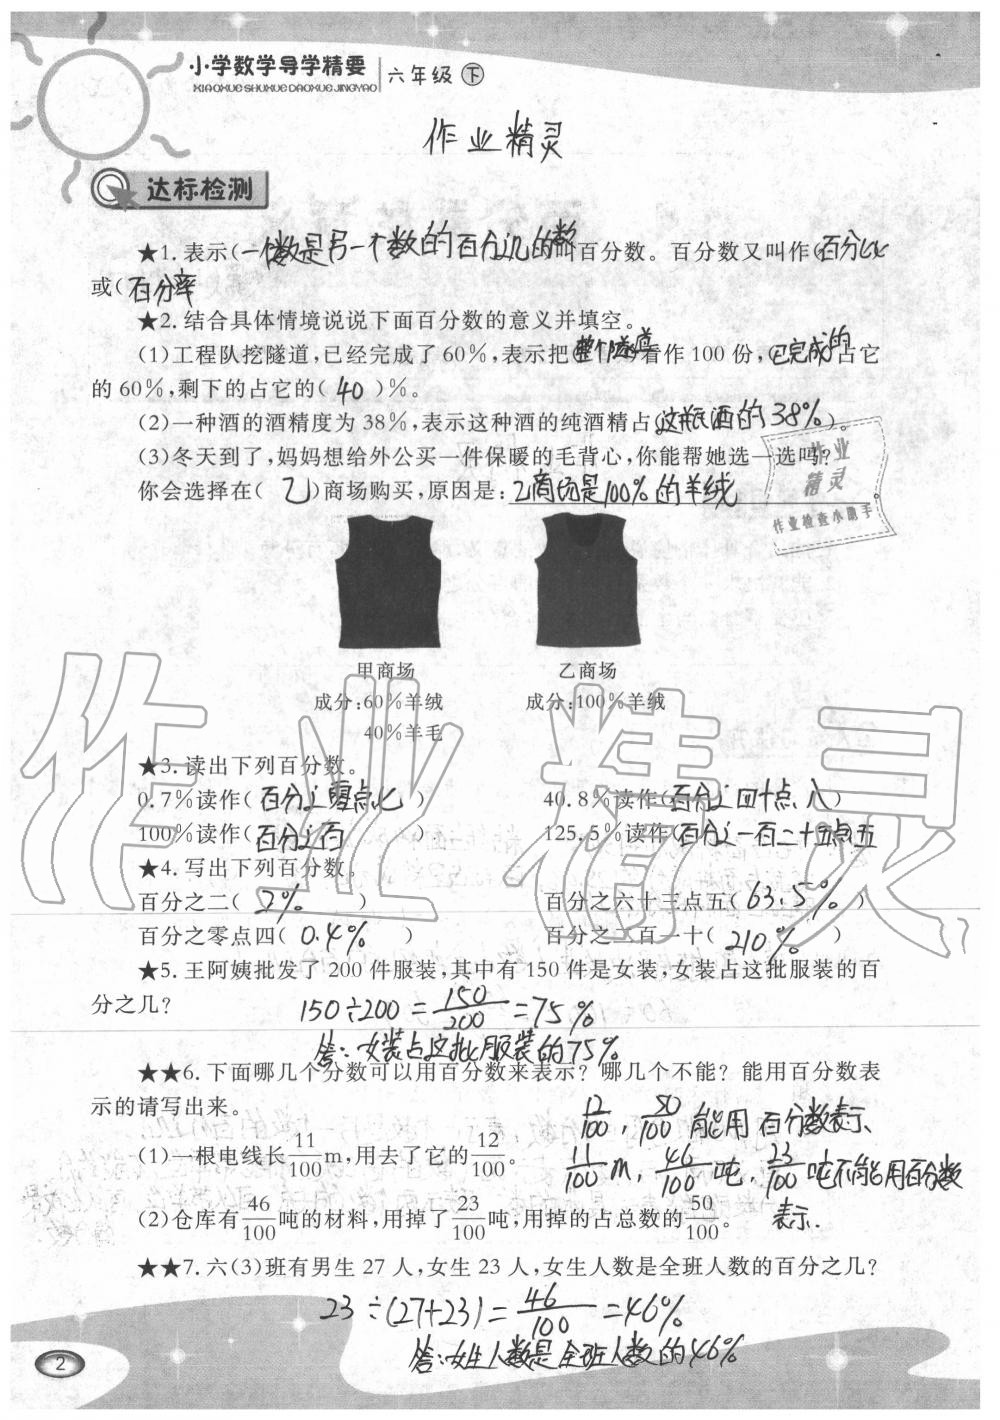 小学数学导学精要 六年级 下
XIAOXUE SHUXUE DAOXUE JINGYAO
作业精灵
达标检测
★1.表示(一个数是另一个数的百分之几的数)叫百分数。百分数又叫作(百分比)
或(百分率
★2.结合具体情境说说下面百分数的意义并填空。
(1)工程队挖隧道,已经完成了60%,表示把(整个隧道)看作100份,(已完成的)占它
的60%,剩下的占它的( 40 )%。
(2)一种酒的酒精度为38%,表示这种酒的纯酒精占(这瓶酒的38%)。
(3)冬天到了,妈妈想给外公买一件保暖的毛背心,你能帮她选一选吗?
你会选择在( 乙 )商场购买,原因是:乙商场是100%的羊绒
作业
精灵
作业检查小助手
甲商场 乙商场
成分:60%羊绒 成分:100%羊绒
40%羊毛
★3.读出下列百分数。
0.7%读作( 百分之零点七 ) 40.8%读作(百分之四十点八)
100%读作(百分之百 ) 125.5%读作(百分之一百二十五点五
★4.写出下列百分数。
百分之二( 2% ) 百分之六十三点五( 63.5% )
百分之零点四( 0.4% ) 百分之二百一十( 210% )
★5.王阿姨批发了200件服装,其中有150件是女装,女装占这批服装的百
分之几?
150÷200=150/200=75%
答:女装占这批服装的75%
★★6.下面哪几个分数可以用百分数来表示?哪几个不能?能用百分数表
示的请写出来。
12/100,50/100能用百分数表示、
(1)一根电线长11/100m,用去了它的12/100。
11/100m,46/100吨,23/100吨不能用百分数
(2)仓库有46/100吨的材料,用掉了23/100吨,用掉的占总数的50/100。
表示.
★★7.六(3)班有男生27人,女生23人,女生人数是全班人数的百分之几?
23÷(27+23)=46/100=46%
答:女生人数是全班人数的46%
2
作业精灵